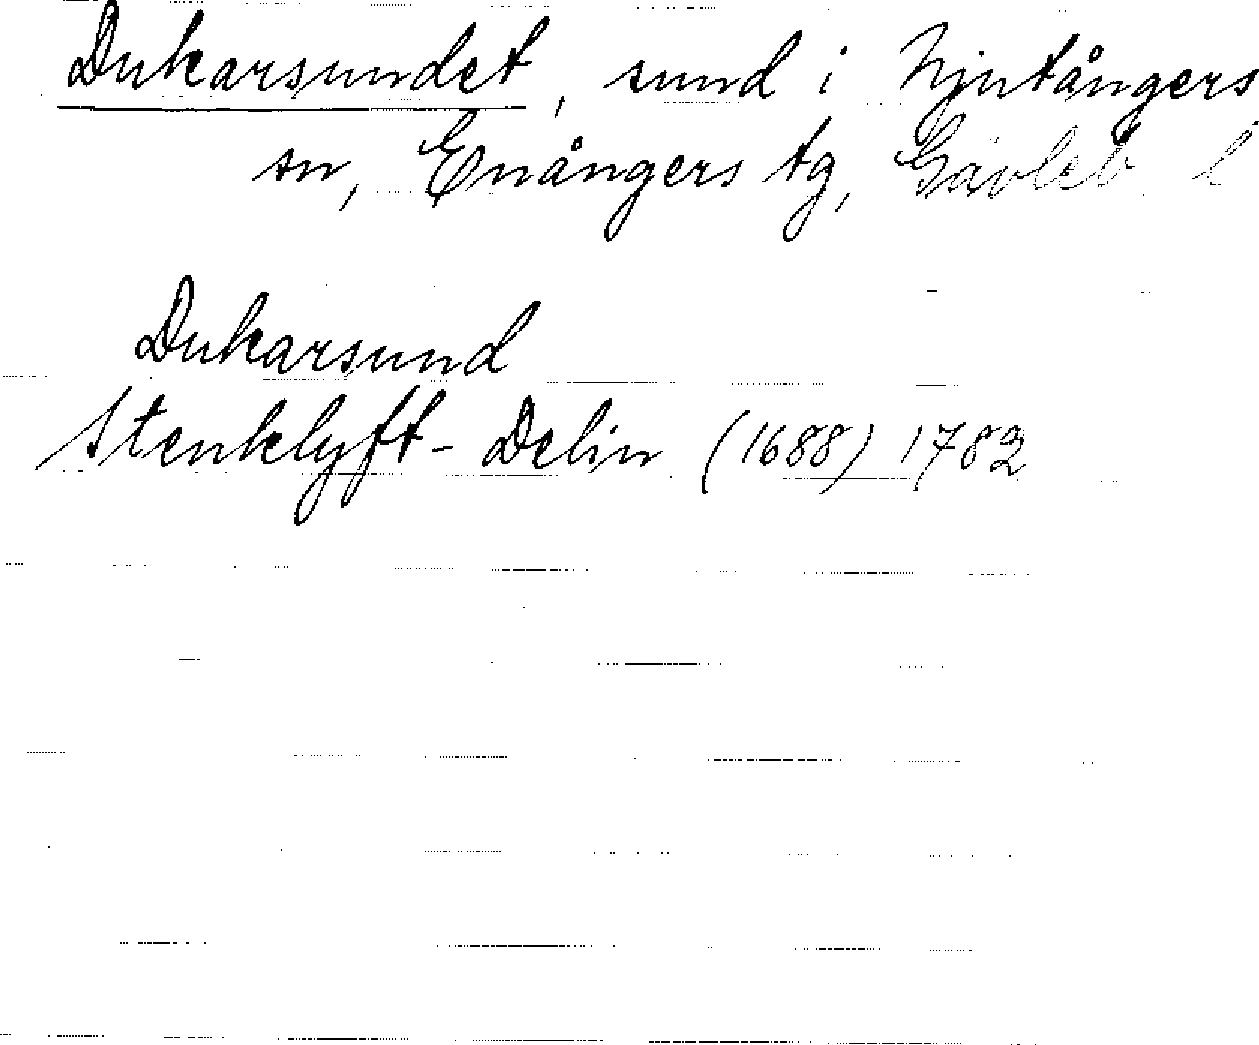 Dukarsundet, sund i Njutångers
sn, Enångers tg, Gävleb. l
Dukarsund
Stenklyft-Delin (1688) 1782